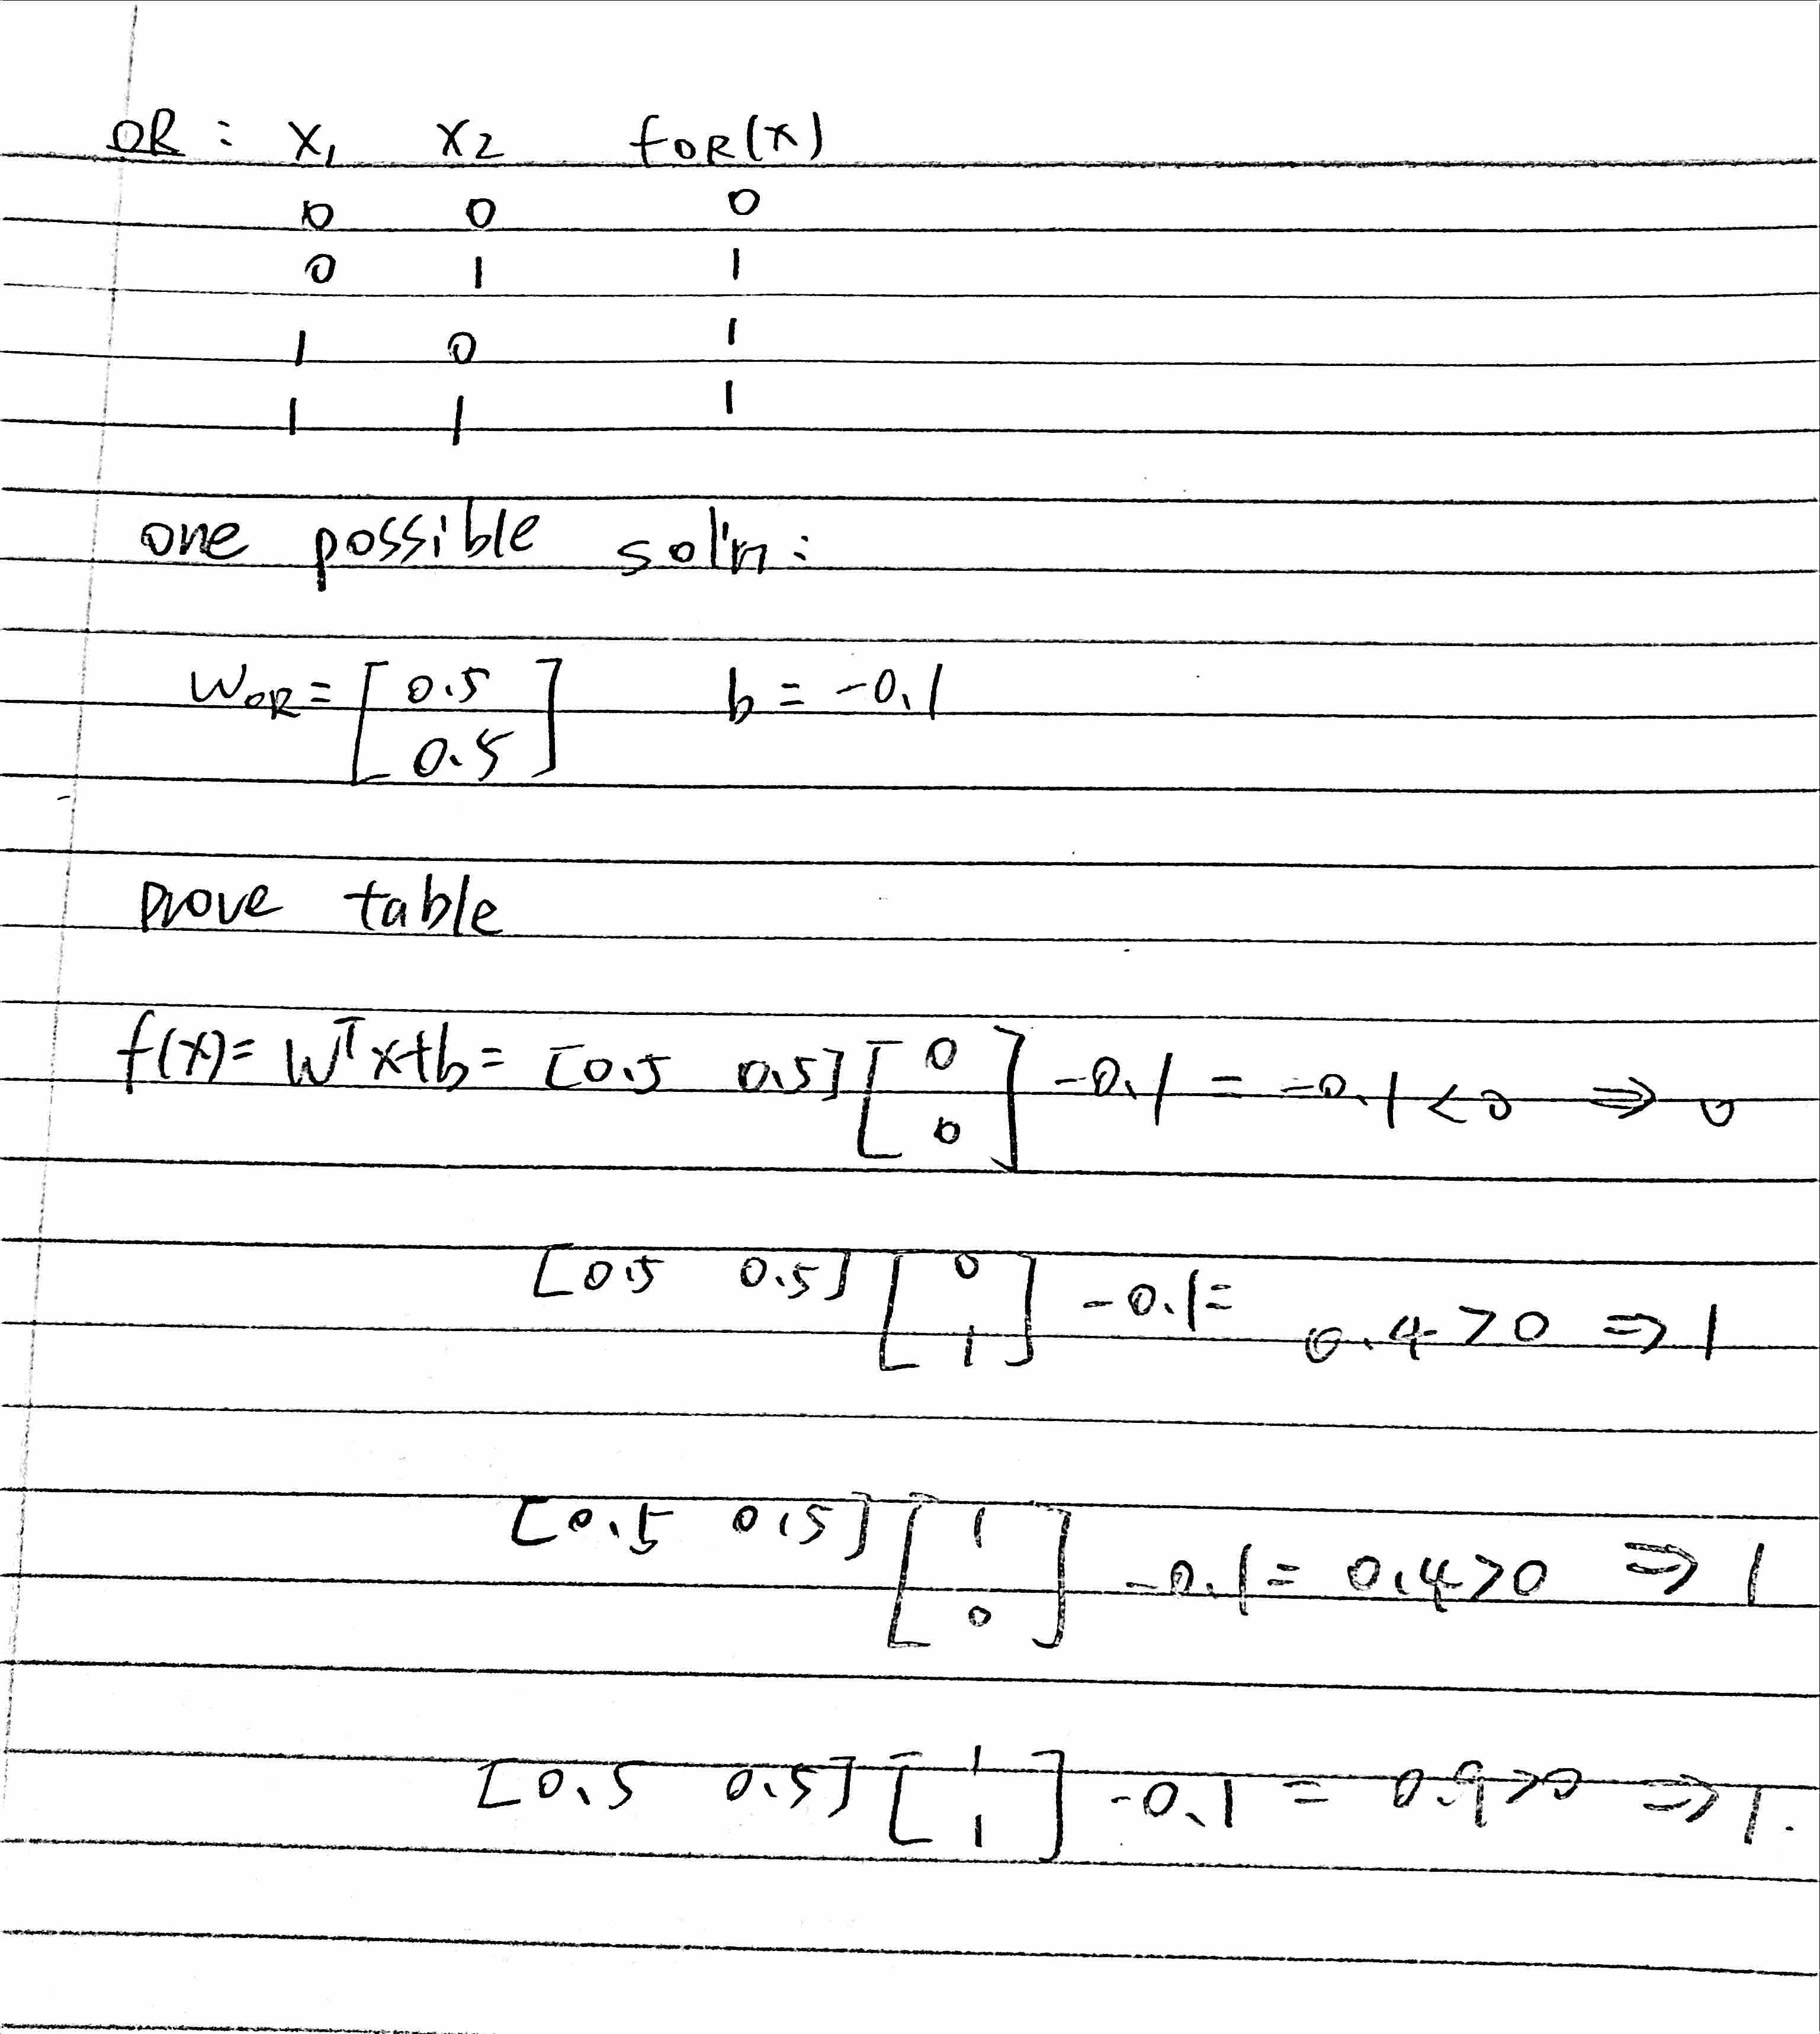 OR : x₁ x₂ fOR(x)
0 0 0
0 1 1
1 0 1
1 1 1
one possible sol'n:
WOR = [ 0.5
0.5 ] b = -0.1
prove table
f(x) = Wᵀx+b = [0.5 0.5] [ 0
0 ] -0.1 = -0.1 < 0 ⇒ 0
[0.5 0.5] [ 0
1 ] -0.1 = 0.4 > 0 ⇒ 1
[0.5 0.5] [ 1
0 ] -0.1 = 0.4 > 0 ⇒ 1
[0.5 0.5] [ 1
1 ] -0.1 = 0.9 > 0 ⇒ 1.